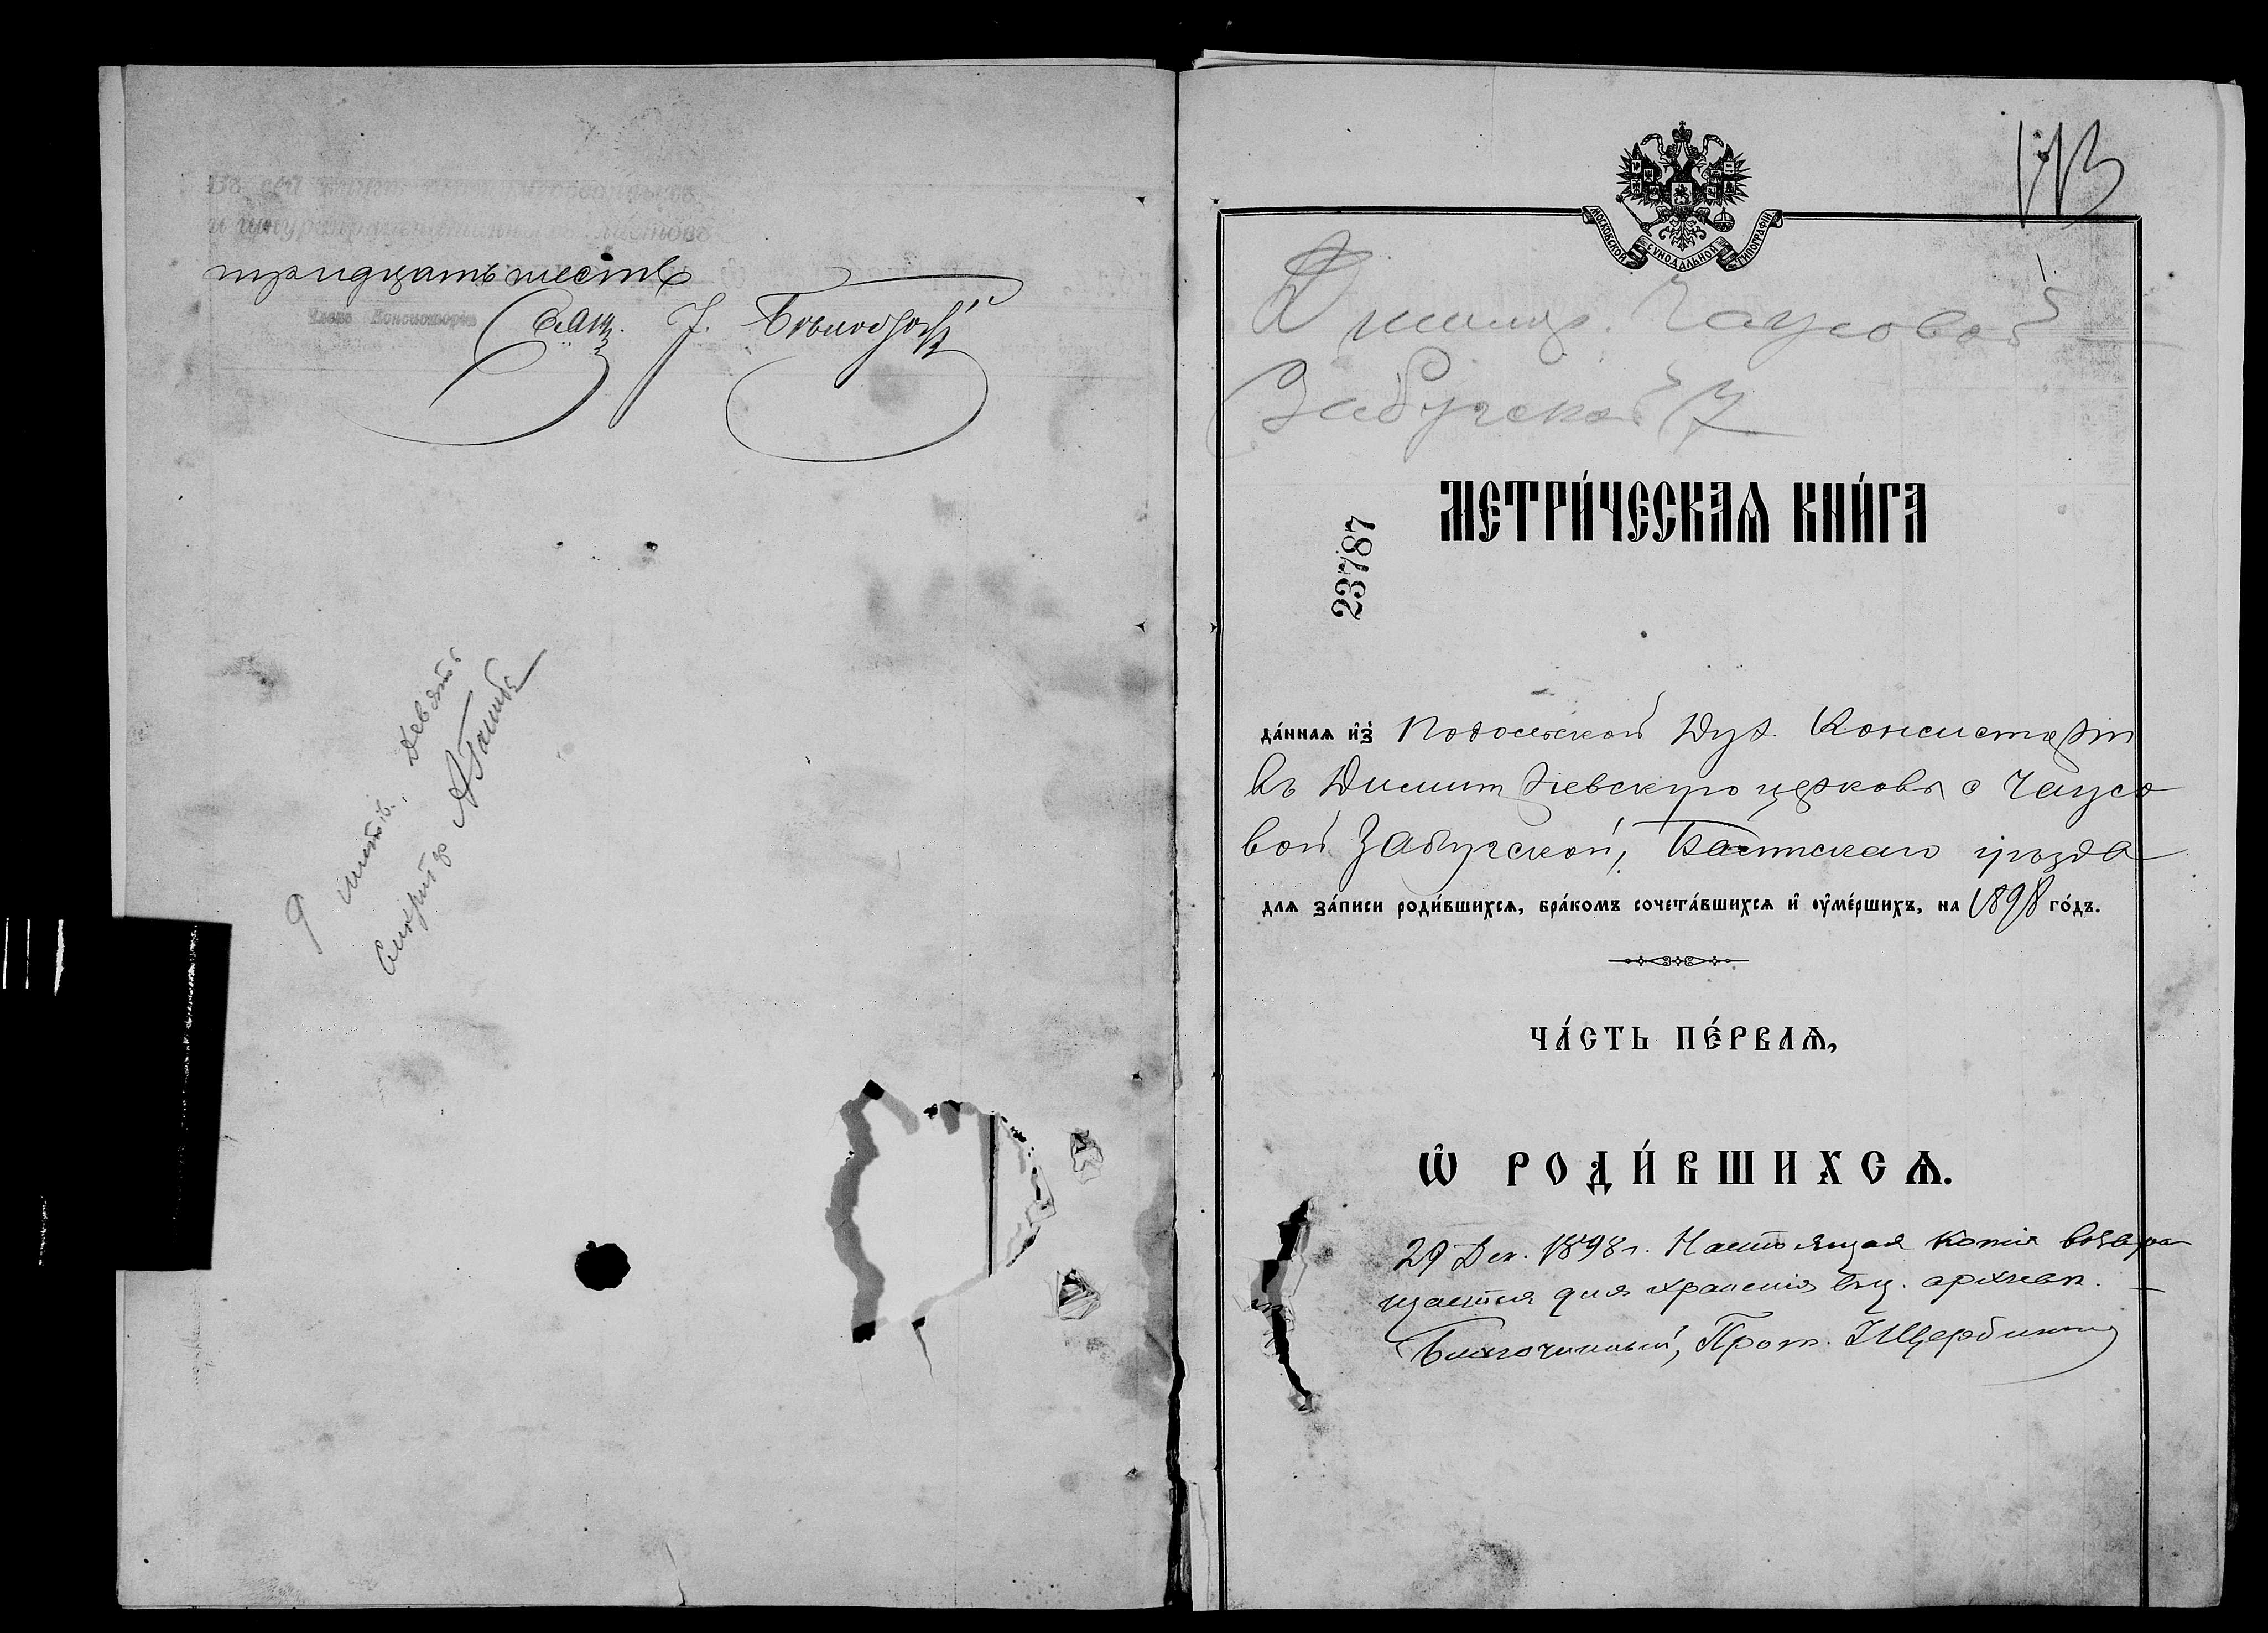 Въ сей книгѣ пронумерованныхъ
и шнуроприпечатанныхъ листовъ
тридцать шесть
Членъ Консисторіи
Свящ. І.
9 листов. девять
Секретарь
113
МОСКОВСКОЙ СѴНОДАЛЬНОЙ ТИПОГРАФІИ
1.
Димитр. Чаусовой
Забугской
МЕТРИ́ЧЕСКАѦ КНИ́ГА
23787
да́ннаѧ и҆з̾ Подольской Дух. Консисторіи
въ Димитріевскую церковь с Чаусо
вой Забугской, Балтскаго уѣзда
длѧ за́писи роди́вшихсѧ, бра́комъ сочета́вшихсѧ и҆ ᲂу҆ме́ршихъ, на 1898 го́дъ.
ЧА́СТЬ ПЕ́РВАѦ,
Ѡ҆ РОДИ́ВШИХСѦ.
29 Дек. 1898 г. Настоящая копія возвра
щается для храненія въ ц. архивѣ.
Благочинный, Прот. І Щербина